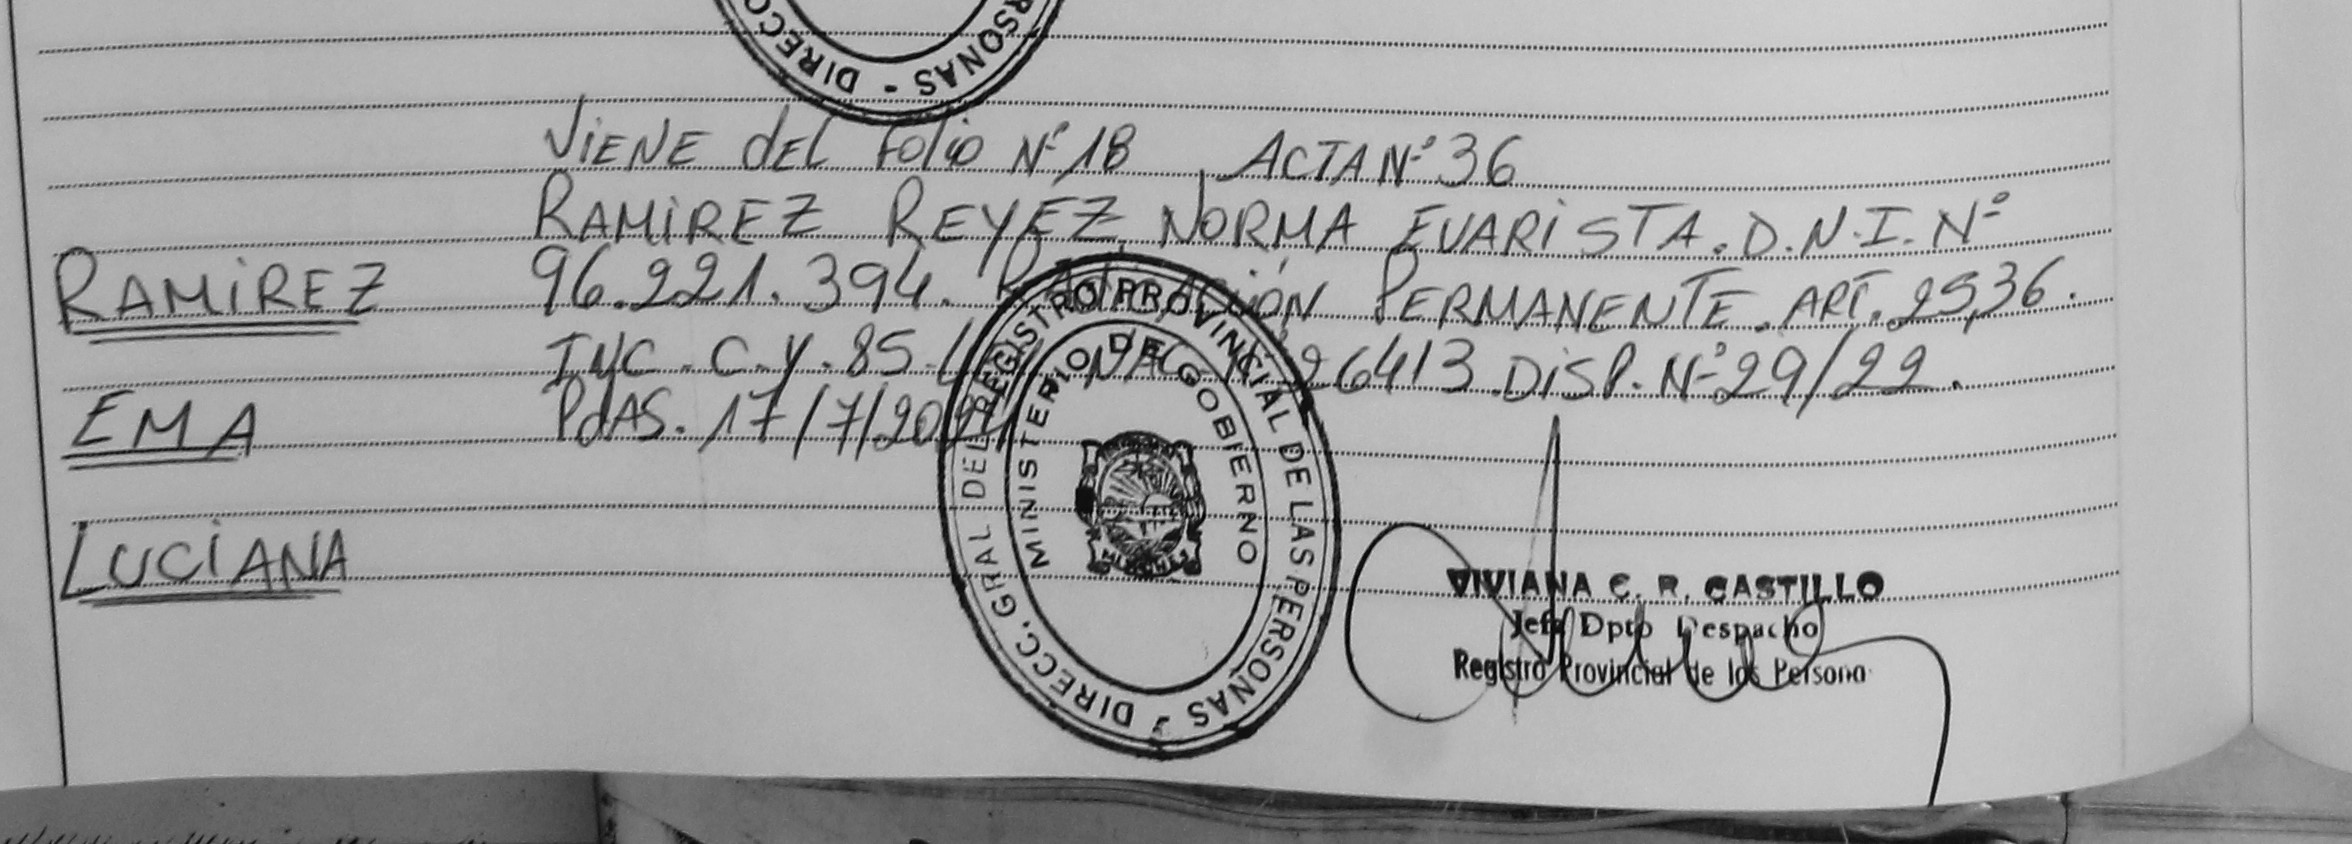 SONAS - DIRECC
VIENE dEL FOLIO Nº 18 ACTA Nº 36
RAMIREZ REYEZ, NORMA EVARISTA. D.N.I. Nº
RAMIREZ
96.221.394. PERMANENTE. ART. 25,36.
INC. C. Y. 85. NAC. 26413. DISP. Nº 29/22.
EMA
PdAS. 17/7/2024
LUCIANA
DIRECC. GRAL DEL REGISTRO PROVINCIAL DE LAS PERSONAS
MINISTERIO DE GOBIERNO
VIVIANA C. R. CASTILLO
Jefa Dpto Despacho
Registro Provincial de las Persona